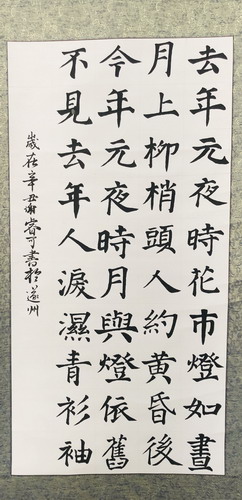 去年元夜時花市燈如晝
月上柳梢頭人約黃昏後
今年元夜時月與燈依舊
不見去年人淚濕青衫袖
歲在辛丑谢睿可書於遂州